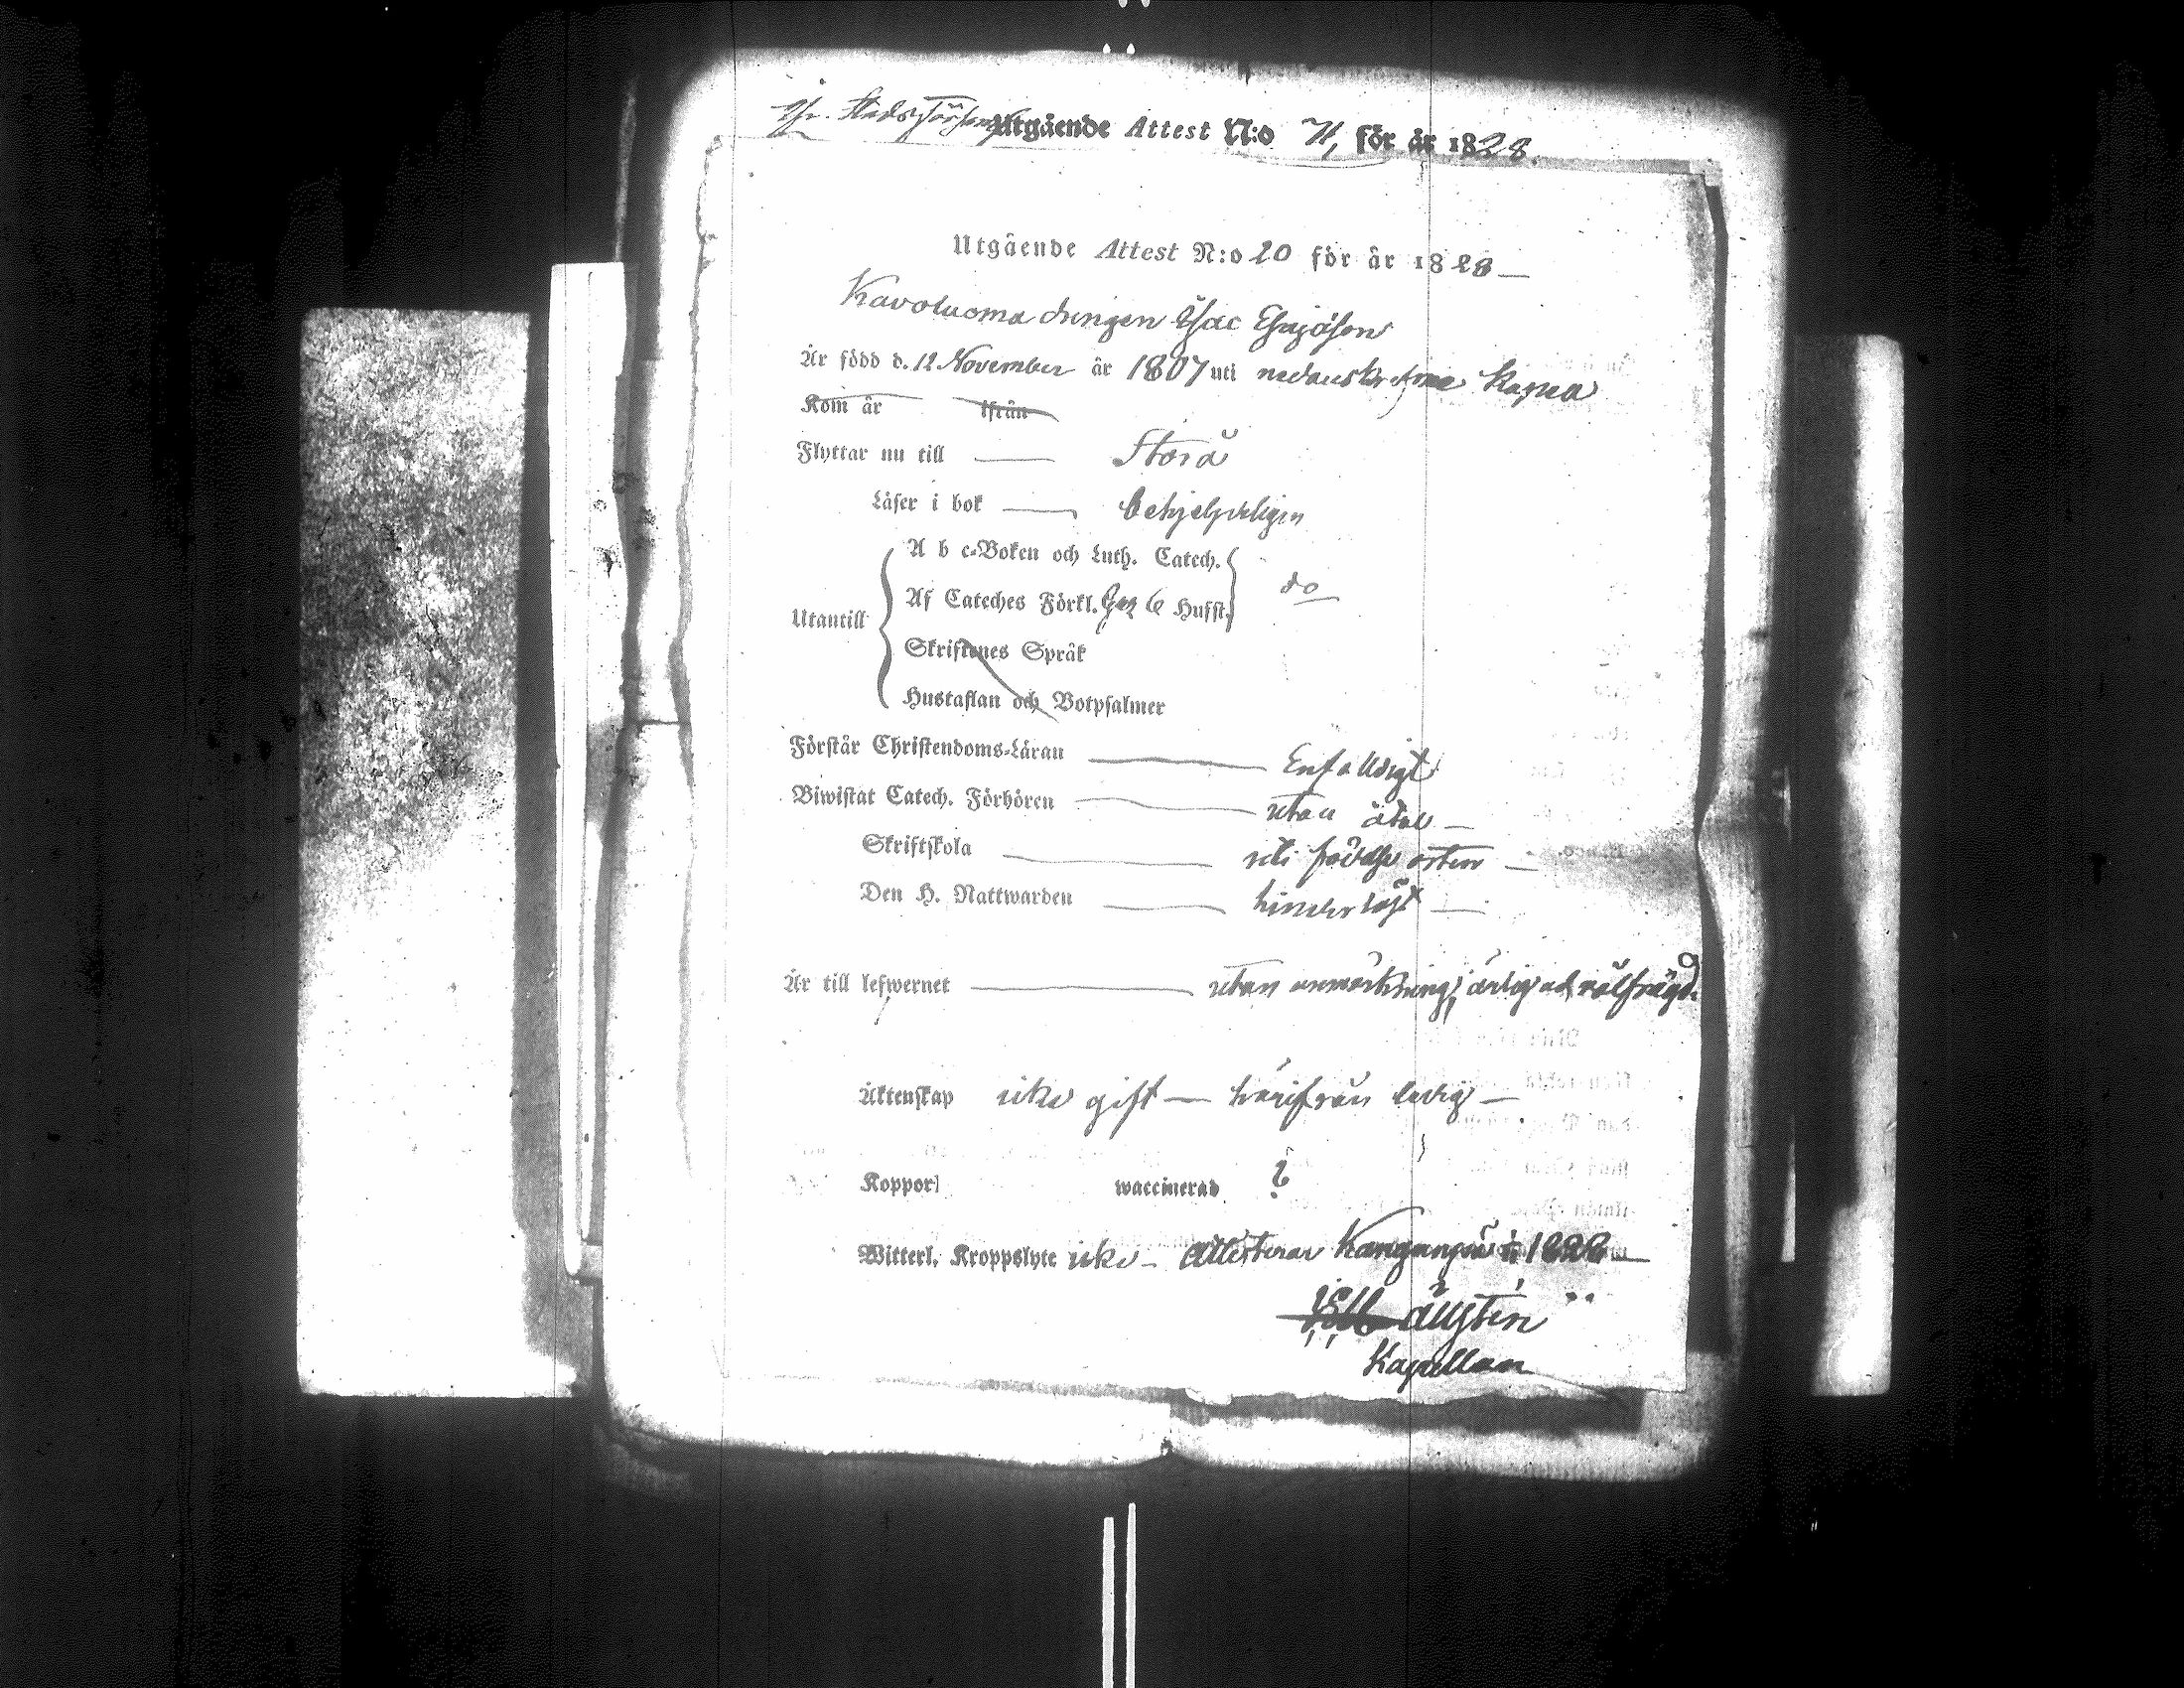 Utgående Attest N:o 71, för år 1828.
Utgående Attest N:o 20 för år 1828
Kavoluoma drengen Isac Esajason
Är född d. 12 November år 1807 uti nedanskrefne Kapea
Kom år ifrån
Flyttar nu till Storå
Läser i bok behjelpeligen
A b c-Boken och Luth. Catech.
Utantill Af Cateches Förkl. Hufst. do
Skriftenes Språk
Hustaflan och Botpsalmer
Förstår Christendoms-Läran Enfalldigt
Biwistat Catech. Förhören utan åtal
Skriftskola uti födelse orten
Den H. Nattwarden hinderlöst
Är till lefwernet utan anmärkning, ärlig och välfrägd.
Äktenskap icke gift härifrån ledig
Koppor waccinerad ?
Witterl. Kroppslyte icke Attesterar 1828
Kapellan